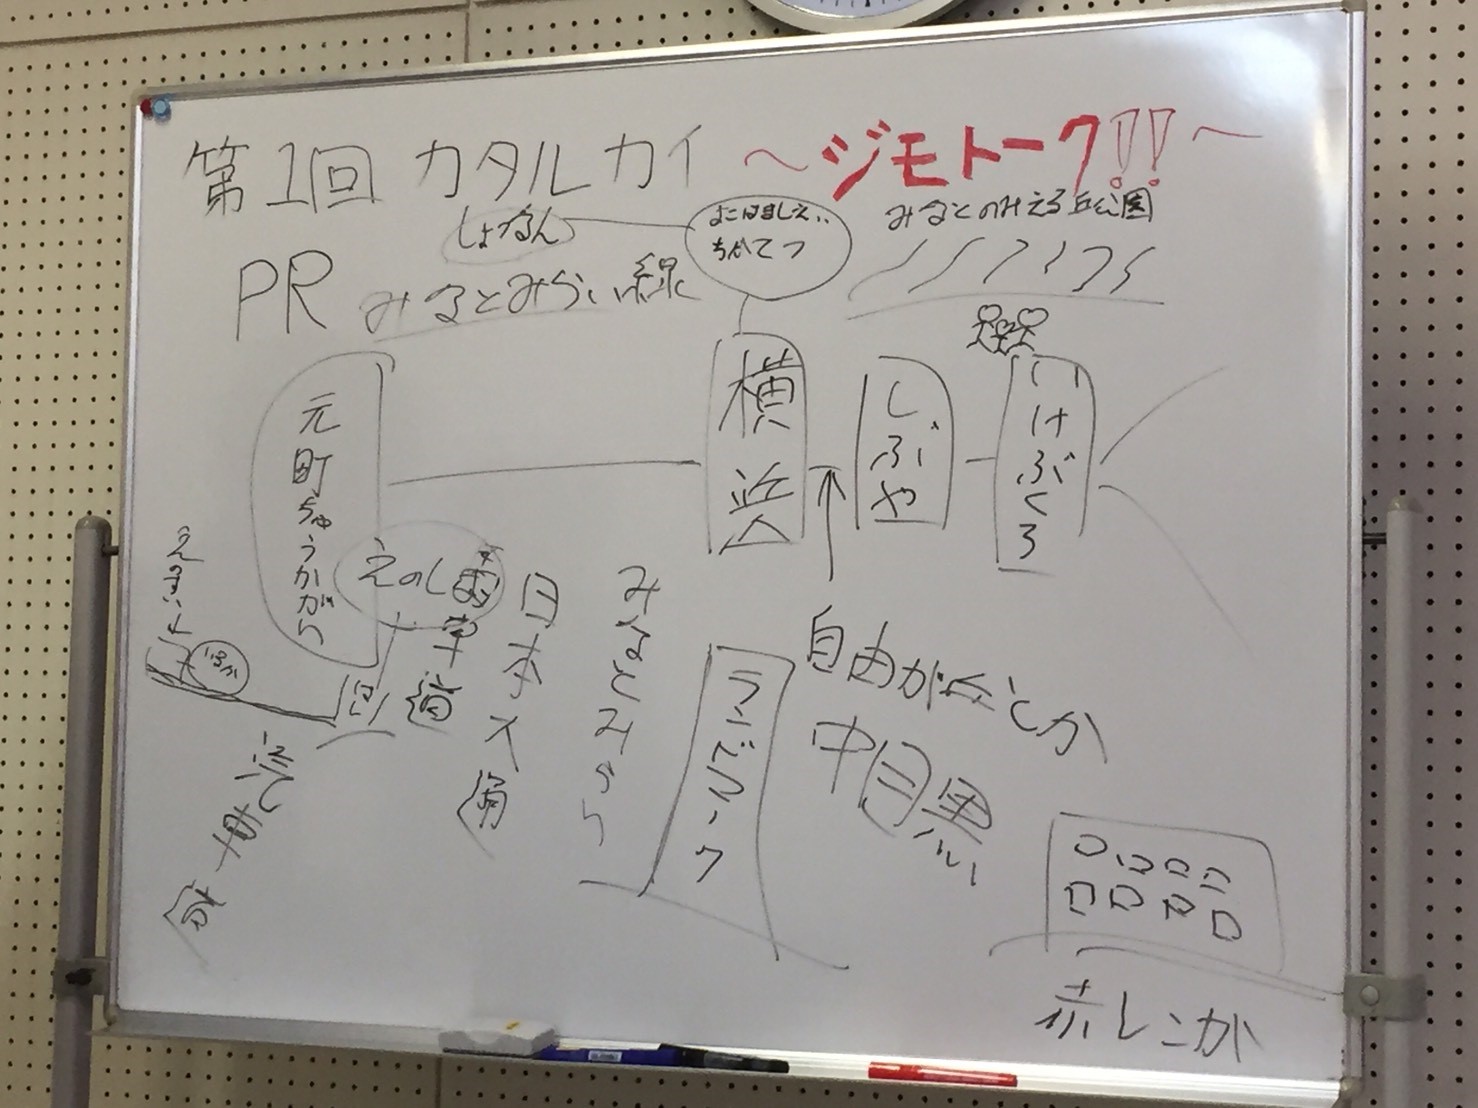 第1回 カタルカイ ～ジモトーク!!～
しょなん
よこはましえい
ちかてつ
みなとのみえる丘公園
PR みなとみらい線
元町ちゅうかがい
横浜
しぶや
いけぶくろ
えのし
日本大通
みなとみらい
ランドマーク
自由が丘とか
中目黒
赤レンガ